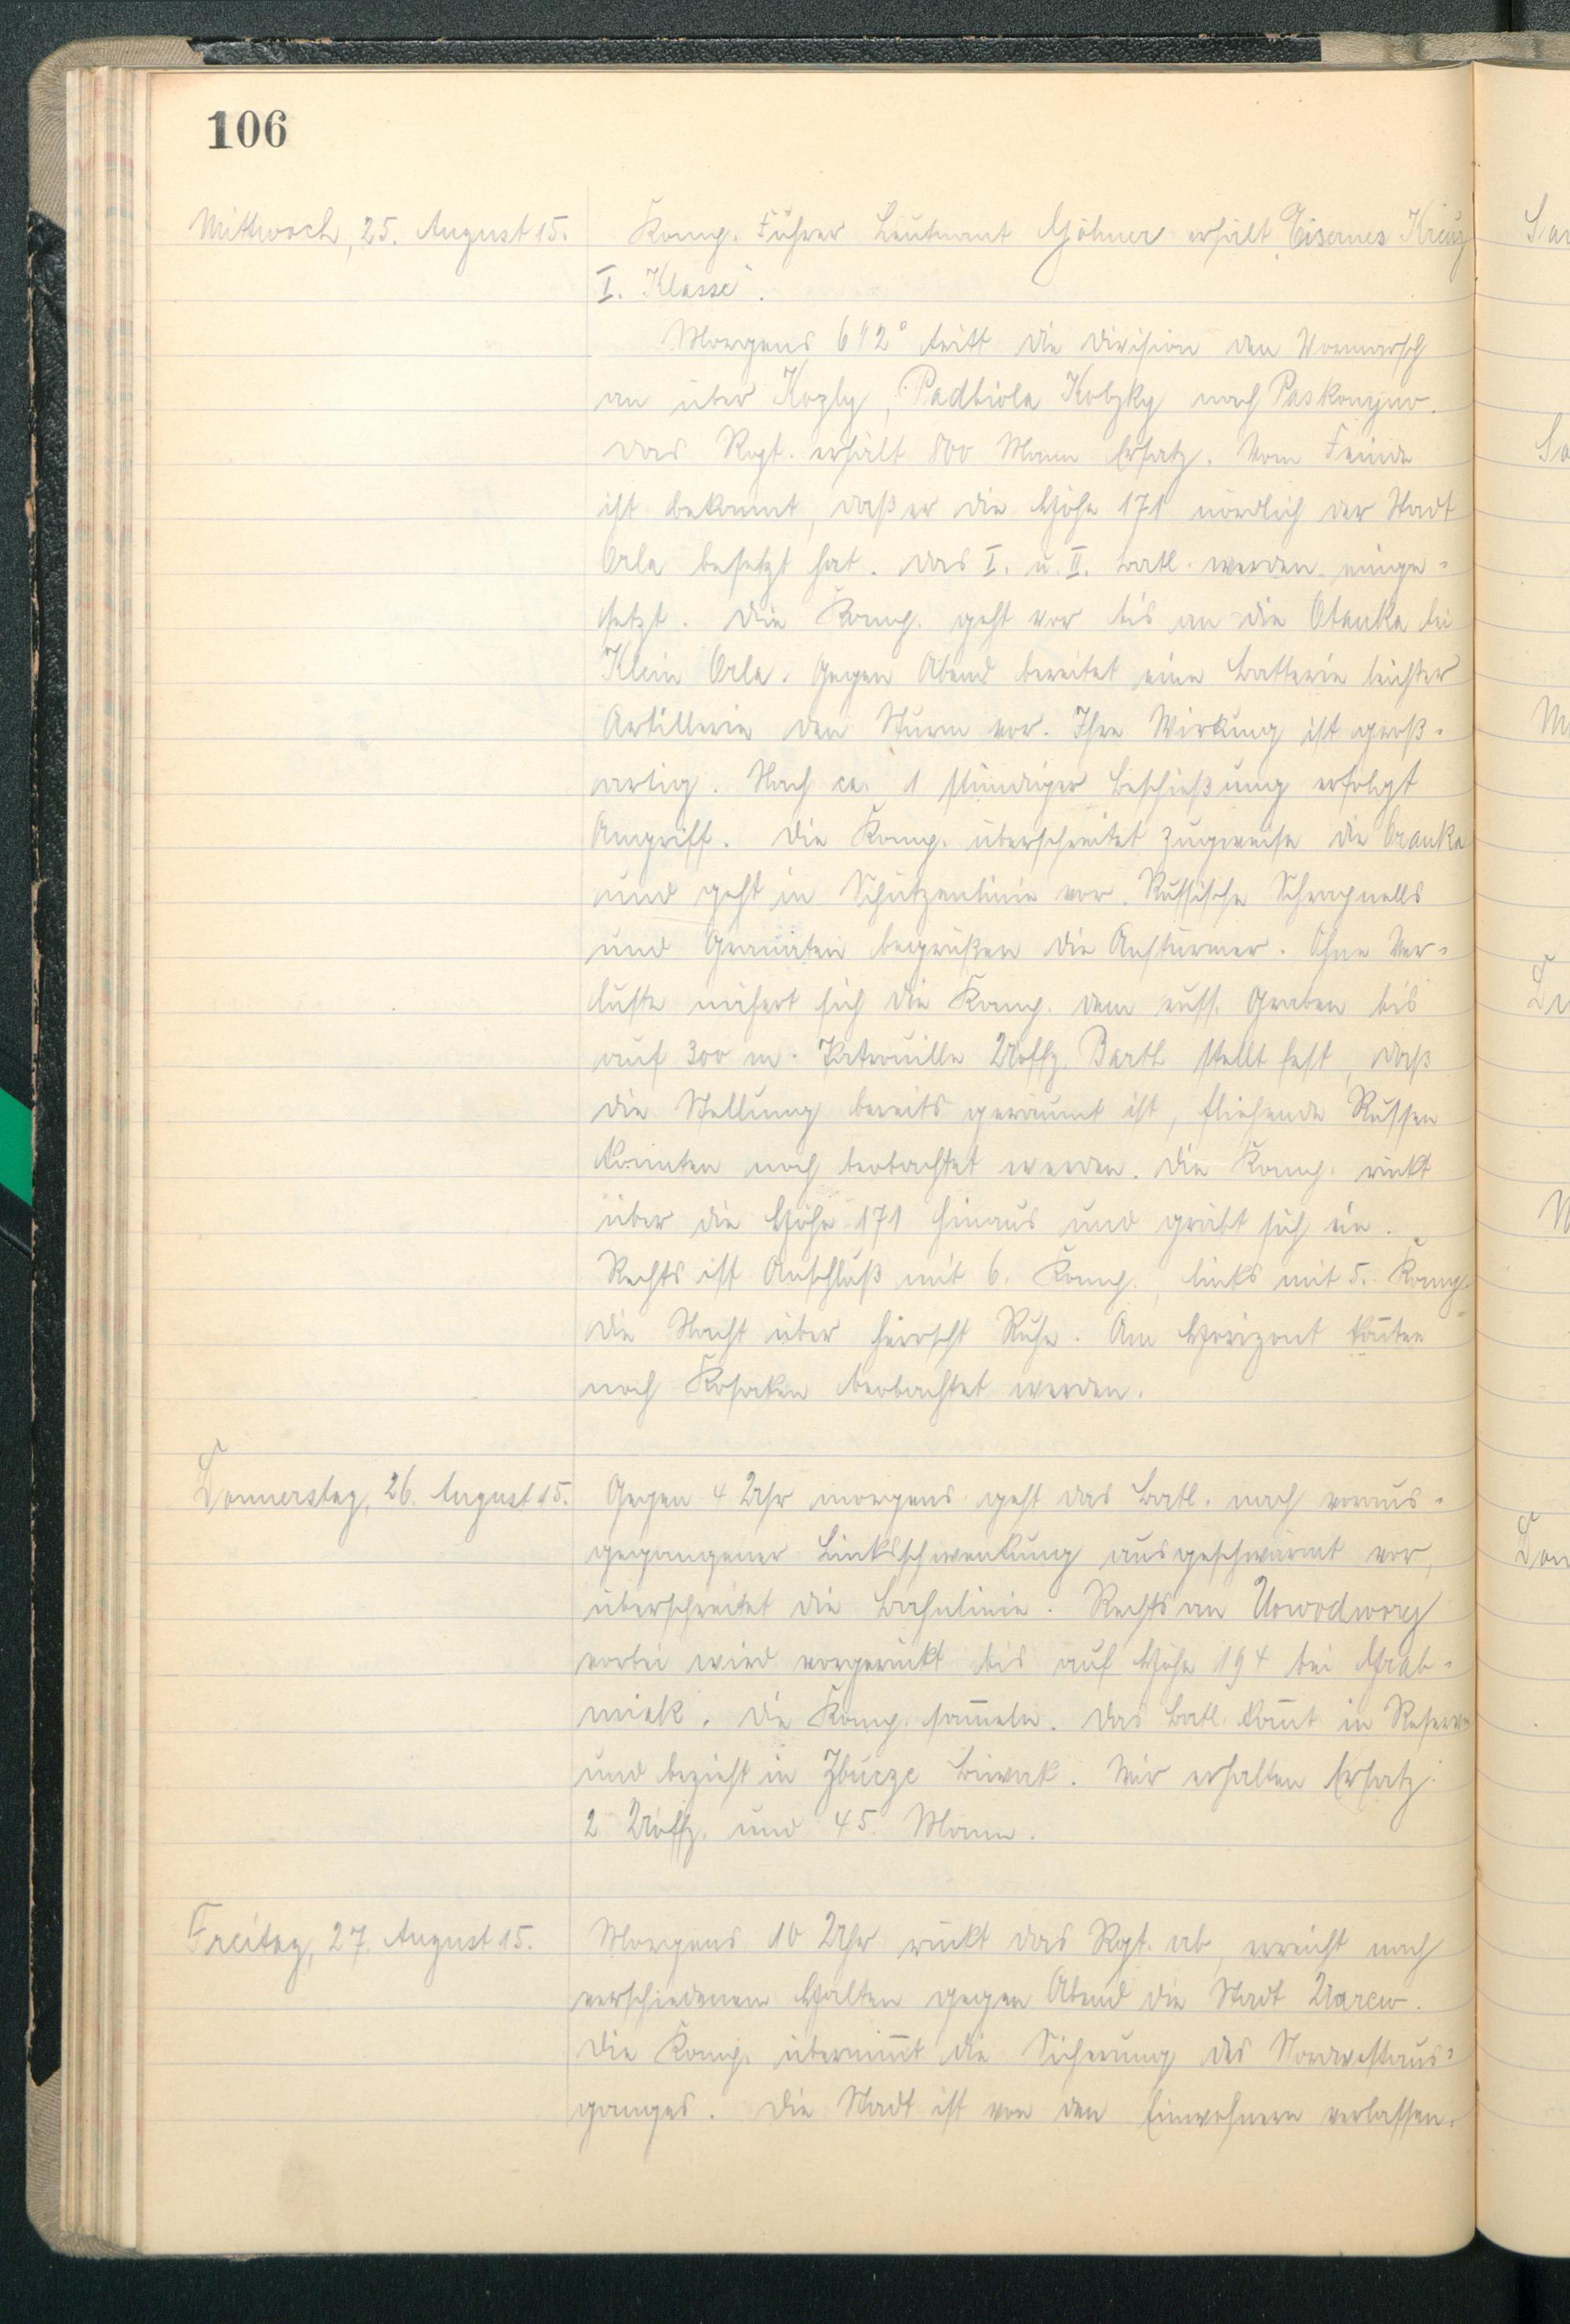 106
Mittwoch, 25. August 15.
Komp. Führer Leutnant Göhner erhält „Eisernes Kreuz
I. Klasse".
Morgens 6 1/2° tritt die Division den Vormarsch
an über Kozly, Padbiola Kobzky nach Paskonyno.
Das Rgt. erhält 800 Mann Ersatz. Vom Feinde
ist bekannt, daß er die Höhe 171 nördlich der Stadt
Orla besetzt hat. Das I. u. II. Batl. werden einge-
setzt. Die Komp. geht vor bis an die Olanka bei
Klein Orla. Gegen Abend bereitet eine Batterie leichter
Artillerie den Sturm vor. Ihre Wirkung ist groß-
artig. Nach ca. 1 stündiger Beschießung erfolgt
Angriff. Die Komp. überschreitet zugweise die Oranka
und geht in Schützenlinie vor. Russische Schrapnells
und Granaten begrüßen die Anstürmer. Ohne Ver-
luste nähert sich die Komp. dem russ. Graben bis
auf 300 m. Patrouille Uoffz. Barth stellt fest, daß
die Stellung bereits geräumt ist, fliehende Russen
konnten noch beobachtet werden. Die Komp. rückt
über die Höhe 171 hinaus und gräbt sich ein.
Rechts ist Anschluß mit 6. Komp., links mit 5. Komp.
Die Nacht über herrscht Ruhe. Am Horizont kon̅ten
noch Kosaken beobachtet werden.
Donnerstag, 26. August 15.
Gegen 4 Uhr morgens geht das Batl. nach voraus-
gegangener Linksschwenkung ausgeschwärmt vor,
überschreitet die Bahnlinie. Rechts an Nowodwory
vorbei wird vorgerückt bis auf Höhe 194 bei Grab-
niak. Die Komp. sam̅eln. Das Batl. kom̅t in Reserve
und bezieht in Zbucze Biwak. Wir erhalten Ersatz
2 Uoffz. und 45 Mann.
Freitag, 27. August 15.
Morgens 10 Uhr rückt das Rgt. ab, erreicht nach
verschiedenen Halten gegen Abend die Stadt Narew.
Die Komp. übernim̅t die Sicherung des Nordwestaus-
ganges. Die Stadt ist von den Einwohnern verlassen.